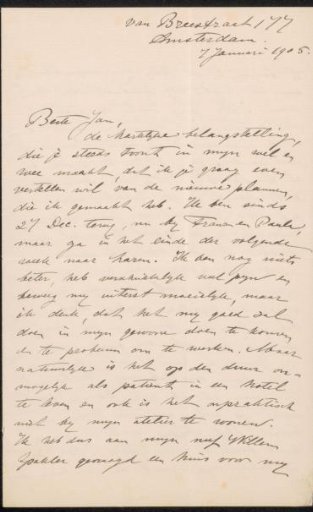 van Breestraat 177
Amsterdam.
7 Januari 1905.
Beste Jan,
de hartelijke belangstelling,
die je steeds toont in mijn wel en
wee maakt, dat ik je graag even
vertellen wil van de nieuwe plannen,
die ik gemaakt heb. Ik ben sinds
27 Dec. terug, nu bij Frans en Paula,
maar ga in het einde der volgende
week naar Laren. Ik ben nog niets
beter, heb verschrikkelijk veel pijn en
beweeg mij uiterst moeielijk, maar
ik denk, dat het mij goed zal
doen in mijn gewone doen te komen,
en te probeeren om te werken. Maar
natuurlijk is het op den duur on-
mogelijk als patient in een hotel
te en ook is het onpraktisch
niet bij mijn atelier te wonen.
Ik heb dus aan mijn neef Willem
gevraagd een huis voor mij